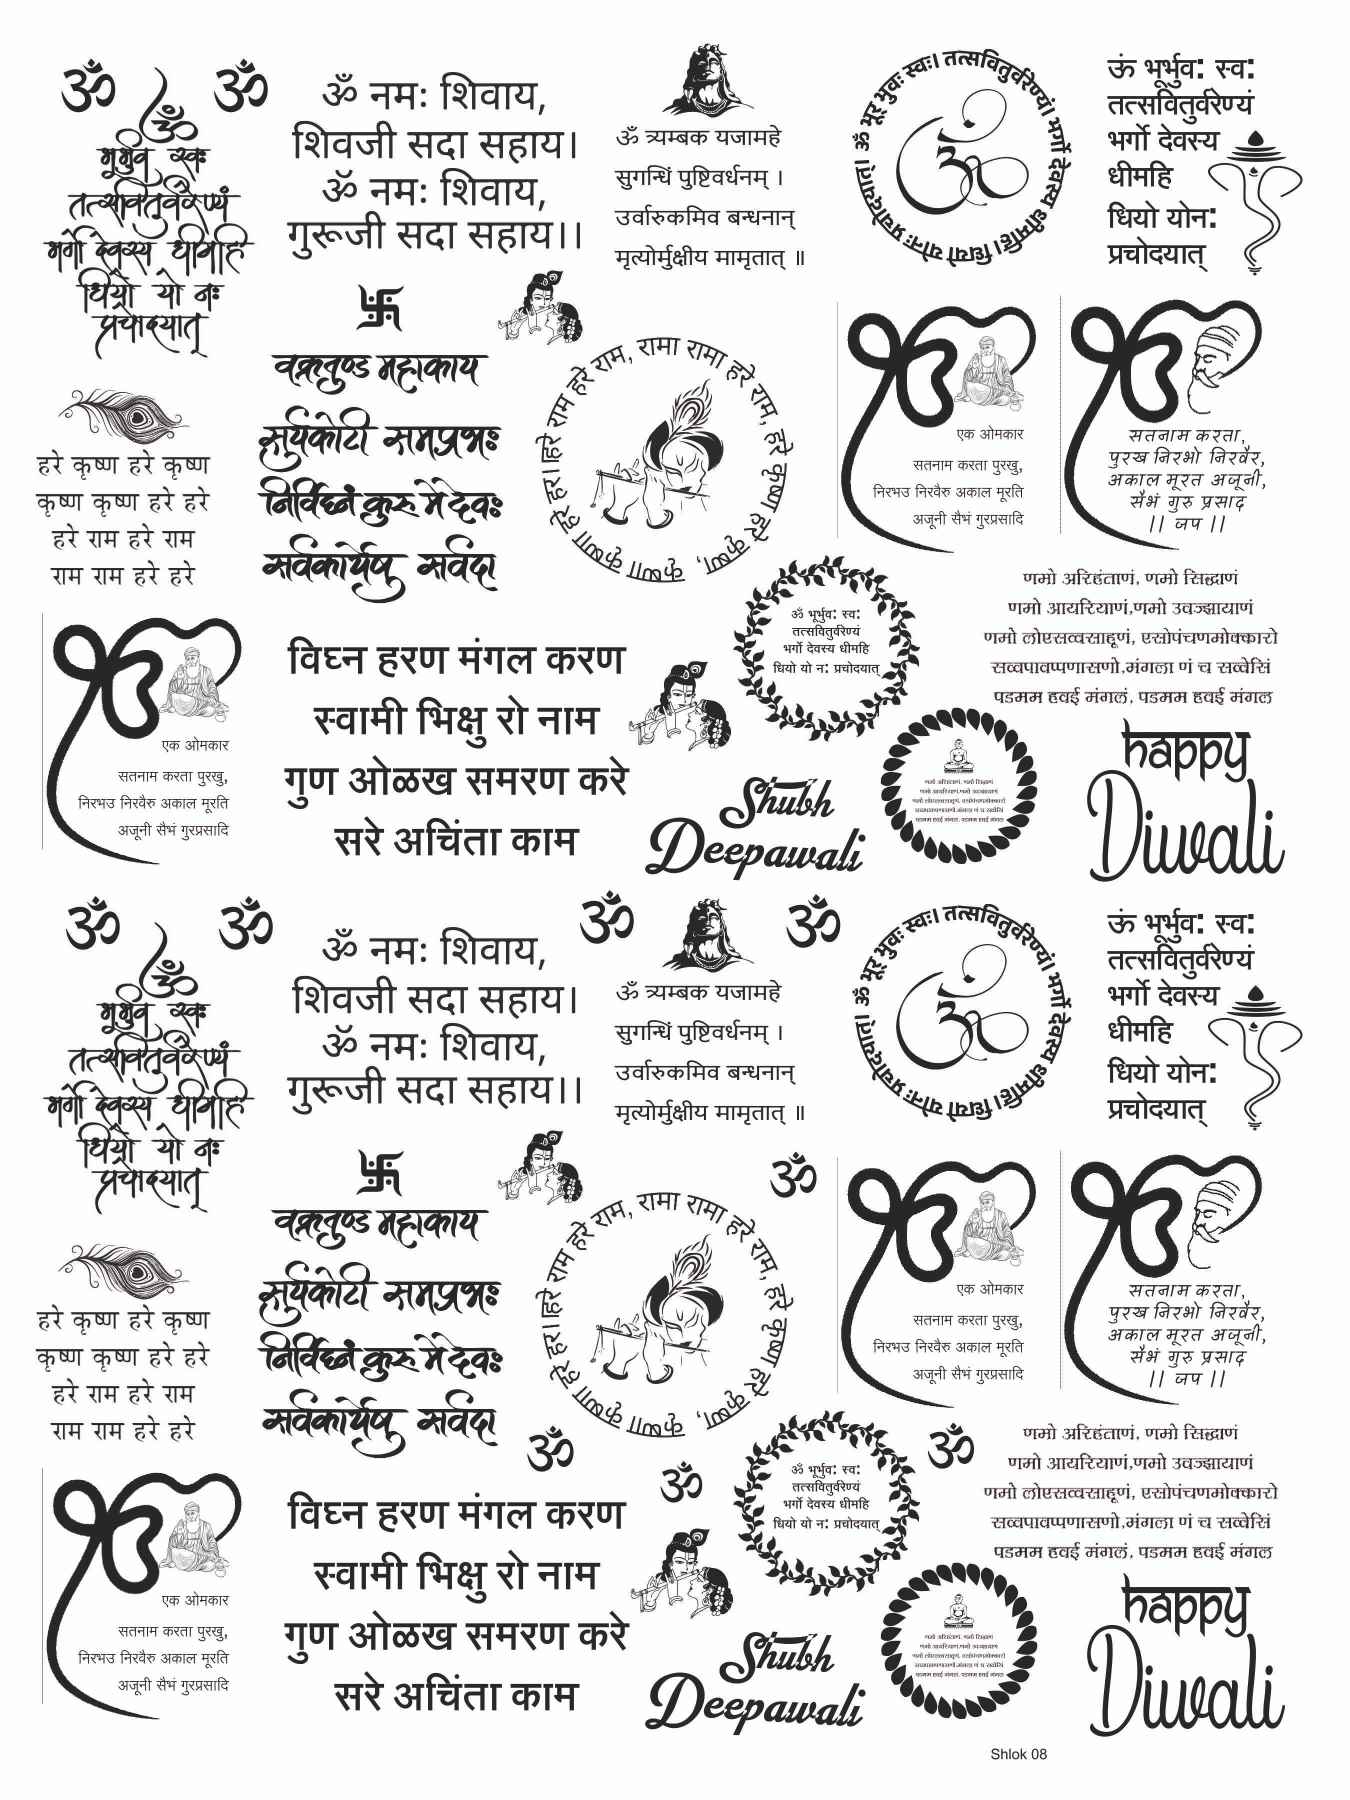 ॐ
ॐ
ॐ
भूर्भुव स्वः
तत्सवितुर्वरेण्यं
भर्गो देवस्य धीमहि
धियो यो नः
प्रचोदयात्
ॐ नमः शिवाय,
शिवजी सदा सहाय।
ॐ नमः शिवाय,
गुरूजी सदा सहाय।।
ॐ त्र्यम्बक यजामहे
सुगन्धिं पुष्टिवर्धनम् ।
उर्वारुकमिव बन्धनान्
मृत्योर्मुक्षीय मामृतात् ॥
ॐ भूर भुवः स्वः। तत्सवितुर्वरेण्यं। भर्गो देवस्य धीमहि। धियो योनः प्रचोदयात्।
ॐ
ऊं भूर्भुव: स्व:
तत्सवितुर्वरेण्यं
भर्गो देवस्य
धीमहि
धियो योन:
प्रचोदयात्
वक्रतुण्ड महाकाय
सुर्यकोटी समप्रभः
निर्विघ्नं कुरु मे देवः
सर्वकार्येषु सर्वदा
हरे राम हरे राम, रामा रामा हरे राम, हरे कृष्ण हरे कृष्ण, कृष्णा कृष्णा हरे हरे।
एक ओमकार
सतनाम करता पुरखु,
निरभउ निरवैरु अकाल मूरति
अजूनी सैभं गुरप्रसादि
सतनाम करता,
पुरख निरभो निरवैर,
अकाल मूरत अजूनी,
सैभं गुरु प्रसाद
।। जप ।।
हरे कृष्ण हरे कृष्ण
कृष्ण कृष्ण हरे हरे
हरे राम हरे राम
राम राम हरे हरे
ॐ भूर्भुव: स्व:
तत्सवितुर्वरेण्यं
भर्गो देवस्य धीमहि
धियो यो न: प्रचोदयात्
णमो अरिहंताणं, णमो सिद्धाणं
णमो आयरियाणं,णमो उवज्झायाणं
णमो लोएसव्वसाहूणं, एसोपंचणमोक्कारो
सव्वपावप्पणासणो,मंगला णं च सव्वेसिं
पडमम हवई मंगलं, पडमम हवई मंगल
एक ओमकार
सतनाम करता पुरखु,
निरभउ निरवैरु अकाल मूरति
अजूनी सैभं गुरप्रसादि
विघ्न हरण मंगल करण
स्वामी भिक्षु रो नाम
गुण ओळख समरण करे
सरे अचिंता काम
Shubh
Deepawali
णमो अरिहंताणं, णमो सिद्धाणं
णमो आयरियाणं,णमो उवज्झायाणं
णमो लोएसव्वसाहूणं, एसोपंचणमोक्कारो
सव्वपावप्पणासणो,मंगला णं च सव्वेसिं
पडमम हवई मंगलं, पडमम हवई मंगल
happy
Diwali
ॐ
ॐ
ॐ
भूर्भुव स्वः
तत्सवितुर्वरेण्यं
भर्गो देवस्य धीमहि
धियो यो नः
प्रचोदयात्
ॐ नमः शिवाय,
शिवजी सदा सहाय।
ॐ नमः शिवाय,
गुरूजी सदा सहाय।।
ॐ
ॐ
ॐ त्र्यम्बक यजामहे
सुगन्धिं पुष्टिवर्धनम् ।
उर्वारुकमिव बन्धनान्
मृत्योर्मुक्षीय मामृतात् ॥
ॐ भूर भुवः स्वः। तत्सवितुर्वरेण्यं। भर्गो देवस्य धीमहि। धियो योनः प्रचोदयात्।
ॐ
ऊं भूर्भुव: स्व:
तत्सवितुर्वरेण्यं
भर्गो देवस्य
धीमहि
धियो योन:
प्रचोदयात्
वक्रतुण्ड महाकाय
सुर्यकोटी समप्रभः
निर्विघ्नं कुरु मे देवः
सर्वकार्येषु सर्वदा
ॐ
हरे राम हरे राम, रामा रामा हरे राम, हरे कृष्ण हरे कृष्ण, कृष्णा कृष्णा हरे हरे।
एक ओमकार
सतनाम करता पुरखु,
निरभउ निरवैरु अकाल मूरति
अजूनी सैभं गुरप्रसादि
सतनाम करता,
पुरख निरभो निरवैर,
अकाल मूरत अजूनी,
सैभं गुरु प्रसाद
।। जप ।।
हरे कृष्ण हरे कृष्ण
कृष्ण कृष्ण हरे हरे
हरे राम हरे राम
राम राम हरे हरे
ॐ
ॐ
ॐ
ॐ भूर्भुव: स्व:
तत्सवितुर्वरेण्यं
भर्गो देवस्य धीमहि
धियो यो न: प्रचोदयात्
णमो अरिहंताणं, णमो सिद्धाणं
णमो आयरियाणं,णमो उवज्झायाणं
णमो लोएसव्वसाहूणं, एसोपंचणमोक्कारो
सव्वपावप्पणासणो,मंगला णं च सव्वेसिं
पडमम हवई मंगलं, पडमम हवई मंगल
एक ओमकार
सतनाम करता पुरखु,
निरभउ निरवैरु अकाल मूरति
अजूनी सैभं गुरप्रसादि
विघ्न हरण मंगल करण
स्वामी भिक्षु रो नाम
गुण ओळख समरण करे
सरे अचिंता काम
Shubh
Deepawali
णमो अरिहंताणं, णमो सिद्धाणं
णमो आयरियाणं,णमो उवज्झायाणं
णमो लोएसव्वसाहूणं, एसोपंचणमोक्कारो
सव्वपावप्पणासणो,मंगला णं च सव्वेसिं
पडमम हवई मंगलं, पडमम हवई मंगल
happy
Diwali
Shlok 08